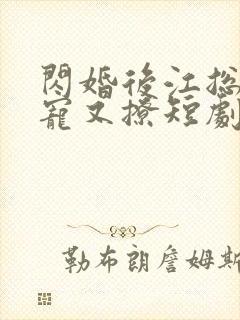 閃婚後江総
寵又撩短劇
勒布朗詹姆斯